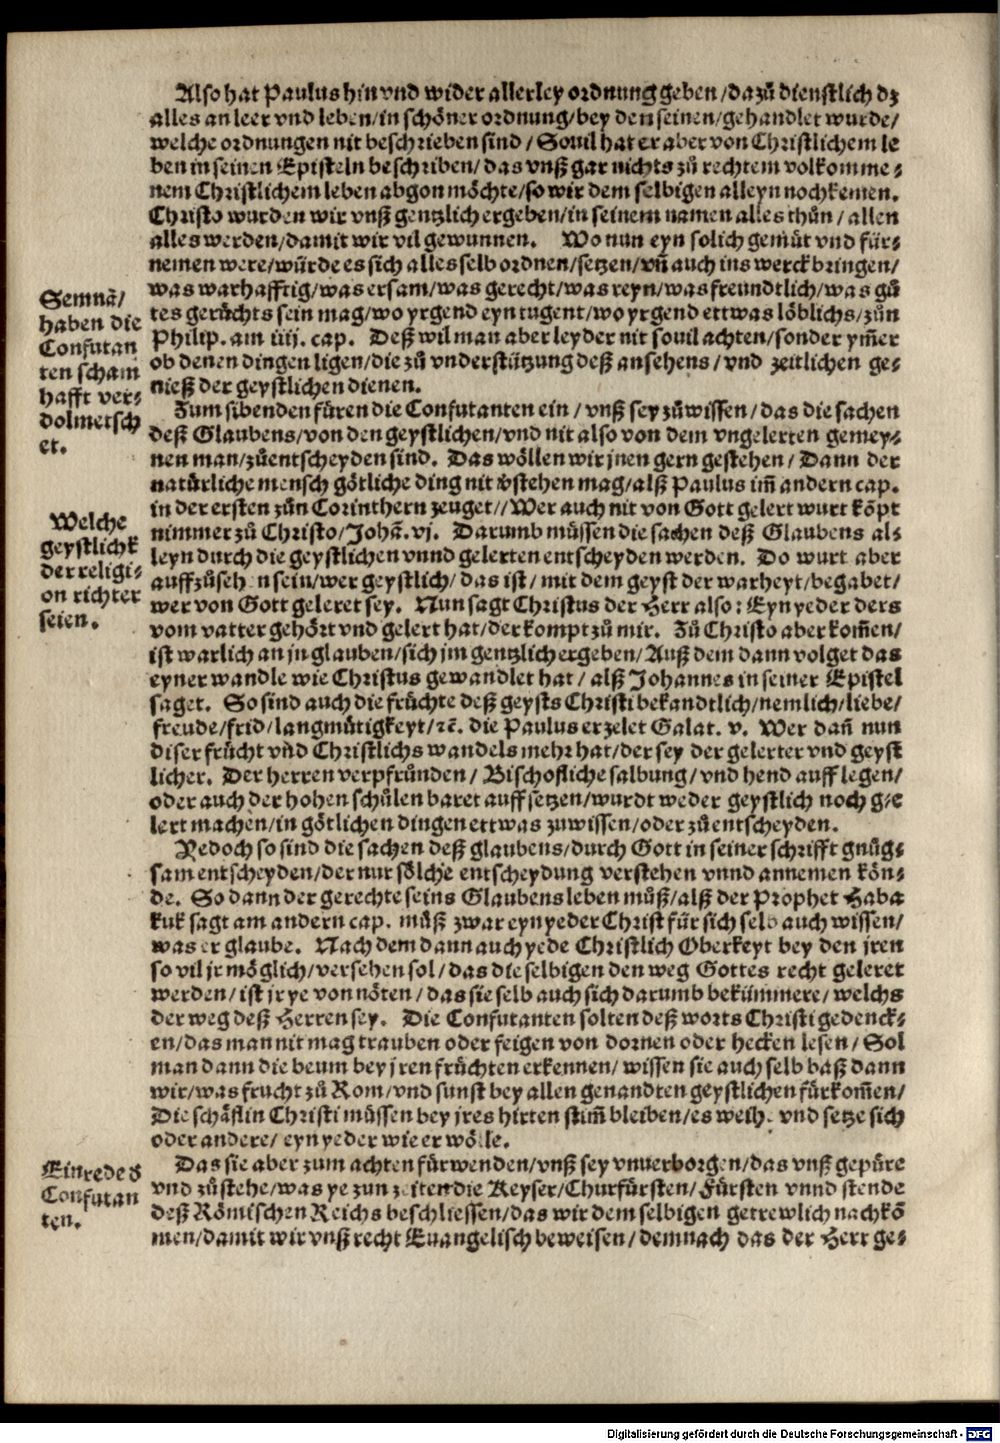 Also hat Paulus hin vnd wider allerley ordnung geben/dazů dienstlich dz
alles an leer vnd leben/in schöner ordnung/bey den seinen/gehandlet wurde/
welche ordnungen nit beschrieben sind/Souil hat er aber von Christlichem le
ben in seinen Episteln beschriben/das vnß gar nichts zů rechtem volkomme⸗
nem Christlichem leben abgon möchte/so wir dem selbigen alleyn nochkemen.
Christo wurden wir vnß gentzlich ergeben/in seinem namen alles thůn/allen
alles werden/damit wir vil gewunnen. Wo nun eyn solich gemüt vnd für⸗
nemen were/würde es sich alles selb ordnen/setzen/vñ auch ins werck bringen/
was warhafftig/was ersam/was gerecht/was reyn/was freundtlich/was gů
tes gerüchts sein mag/wo yrgend eyn tugent/wo yrgend ettwas löblichs/zůn
Philip. am iiij. cap. Deß wil man aber leyder nit souil achten/sonder ym̃er
ob denen dingen ligen/die zů vnderstützung deß ansehens/vnd zeitlichen ge⸗
nieß der geystlichen dienen.
Semnā/
haben die
Confutan
ten scham
hafft ver⸗
dolmetsch
et.
Zum sibenden füren die Confutanten ein/vnß sey zůwissen/das die sachen
deß Glaubens/von den geystlichen/vnd nit also von dem vngelerten gemey⸗
nen man/zůentscheyden sind. Das wöllen wir jnen gern gestehen/Dann der
natürliche mensch götliche ding nit v̄stehen mag/alß Paulus im̃ andern cap.
in der ersten zůn Corinthern zeuget//Wer auch nit von Gott gelert wurt köpt
nimmer zů Christo/Johā. vj. Darumb müssen die sachen deß Glaubens al⸗
leyn durch die geystlichen vnnd gelerten entscheyden werden. Do wurt aber
auffzůsehen sein/wer geystlich/das ist/mit dem geyst der warheyt/begabet/
wer von Gott geleret sey. Nun sagt Christus der Herr also: Eyn yeder ders
vom vatter gehört vnd gelert hat/der kompt zů mir. Zů Christo aber kom̃en/
ist warlich an jn glauben/sich jm gentzlich ergeben/Auß dem dann volget das
eyner wandle wie Christus gewandlet hat/alß Johannes in seiner Epistel
saget. So sind auch die früchte deß geysts Christi bekandtlich/nemlich/liebe/
freude/frid/langmütigkeyt/ꝛc̄. die Paulus erzelet Galat. v. Wer dañ nun
diser frücht vnd Christlichs wandels mehr hat/der sey der gelerter vnd geyst
licher. Der herren verpfründen/Bischofliche salbung/vnd hend auff legen/
oder auch der hohen schůlen baret auff setzen/wurdt weder geystlich noch ge
lert machen/in götlichen dingen ettwas zuwissen/oder zůentscheyden.
Welche
geystlich
der religi⸗
on richter
seien.
Yedoch so sind die sachen deß glaubens/durch Gott in seiner schrifft gnůg⸗
sam entscheyden/der nur sölche entscheydung verstehen vnnd annemen kön⸗
de. So dann der gerechte seins Glaubens leben můß/alß der Prophet Haba
kuk sagt am andern cap. můß zwar eyn yeder Christ für sich selb auch wissen/
was er glaube. Nach dem dann auch yede Christlich Oberkeyt bey den jren
so vil jr möglich/versehen sol/das die selbigen den weg Gottes recht geleret
werden/ist jr ye von nöten/das sie selb auch sich darumb bekümmere/welchs
der weg deß Herren sey. Die Confutanten solten deß worts Christi gedenck⸗
en/das man nit mag trauben oder feigen von dornen oder hecken lesen/Sol
man dann die beum bey jren früchten erkennen/wissen sie auch selb baß dann
wir/was frucht zů Rom/vnd sunst bey allen genandten geystlichen fürkom̃en/
Die schäflin Christi müssen bey jres hirten stim̃ bleiben/es weihe vnd setze sich
oder andere/eyn yeder wie er wölle.
Einrede d̓
Confutan
ten.
Das sie aber zum achten fürwenden/vnß sey vnuerborgen/das vnß gepüre
vnd zůstehe/was ye zun zeiten die Keyser/Churfürsten/Fürsten vnnd stende
deß Römischen Reichs beschliessen/das wir dem selbigen getrewlich nachkō
men/damit wir vnß recht Euangelisch beweisen/demnach das der Herr ge⸗
Digitalisierung gefördert durch die Deutsche Forschungsgemeinschaft - DFG